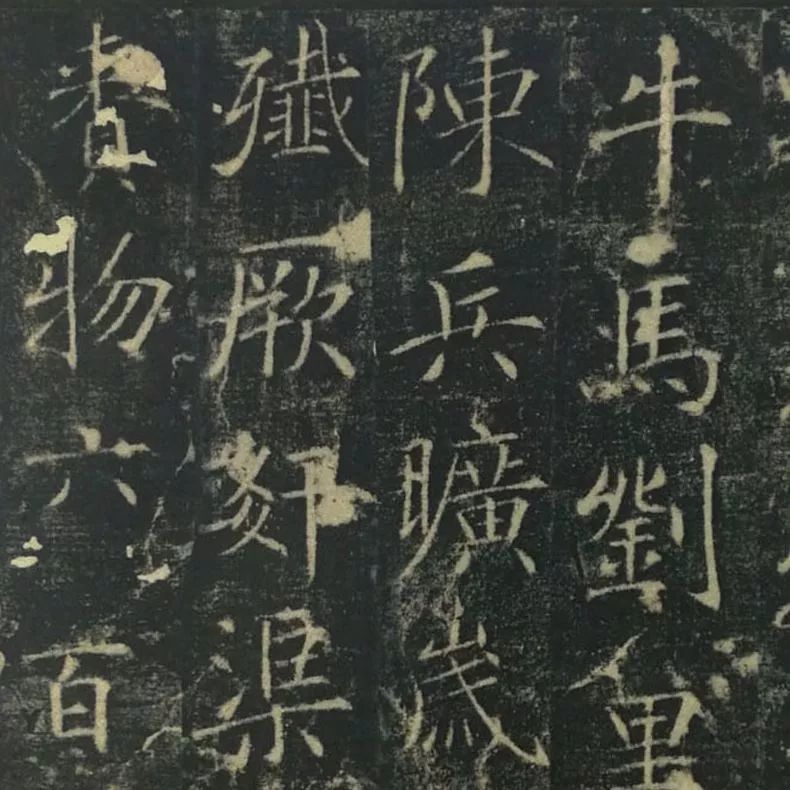 牛馬劉
陳兵曠歲
殲厥渠
賚物六百